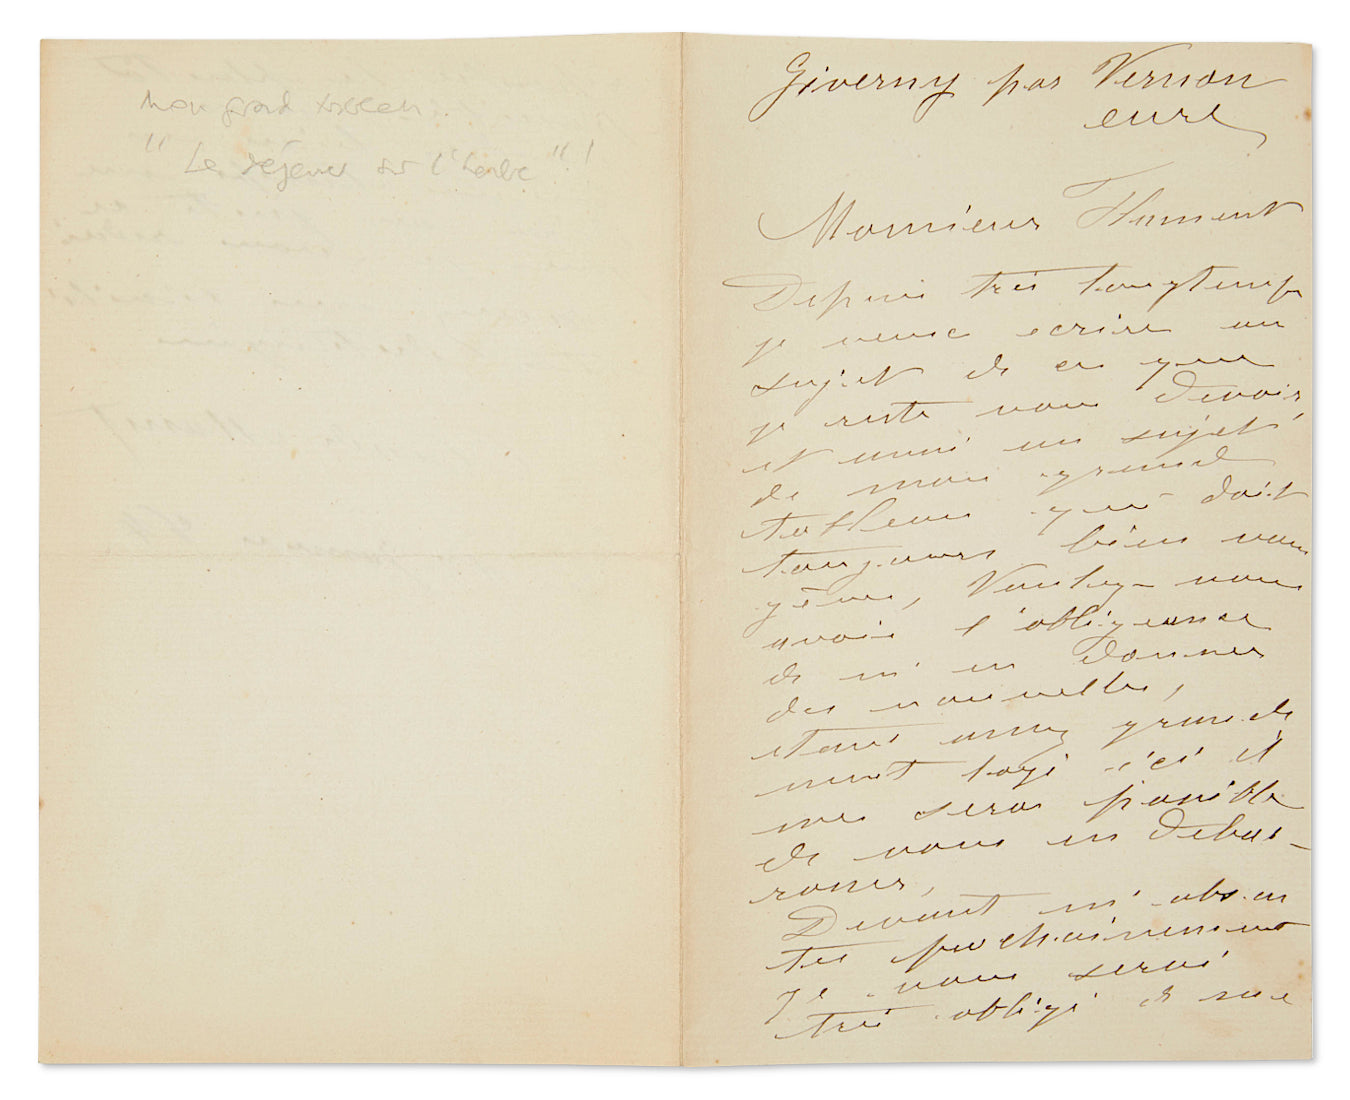 mon grand tableau
" Le déjeuner sur l'herbe " !
Giverny par Vernon
eure
Monsieur Flament
Depuis très longtemps
je veux ecrire au
sujet de ce que
je reste vous devoir
et aussi au sujet
de mon grand
tableau qui doit
toujours bien vous
gêner, Voulez-vous
avoir l'obligeance
de m'en donner
des nouvelles,
étant assez grande
ment logé ici il
me sera possible
de vous en débar-
rasser,
Devant m'absen
ter prochainement
je vous serai
très obligé de me